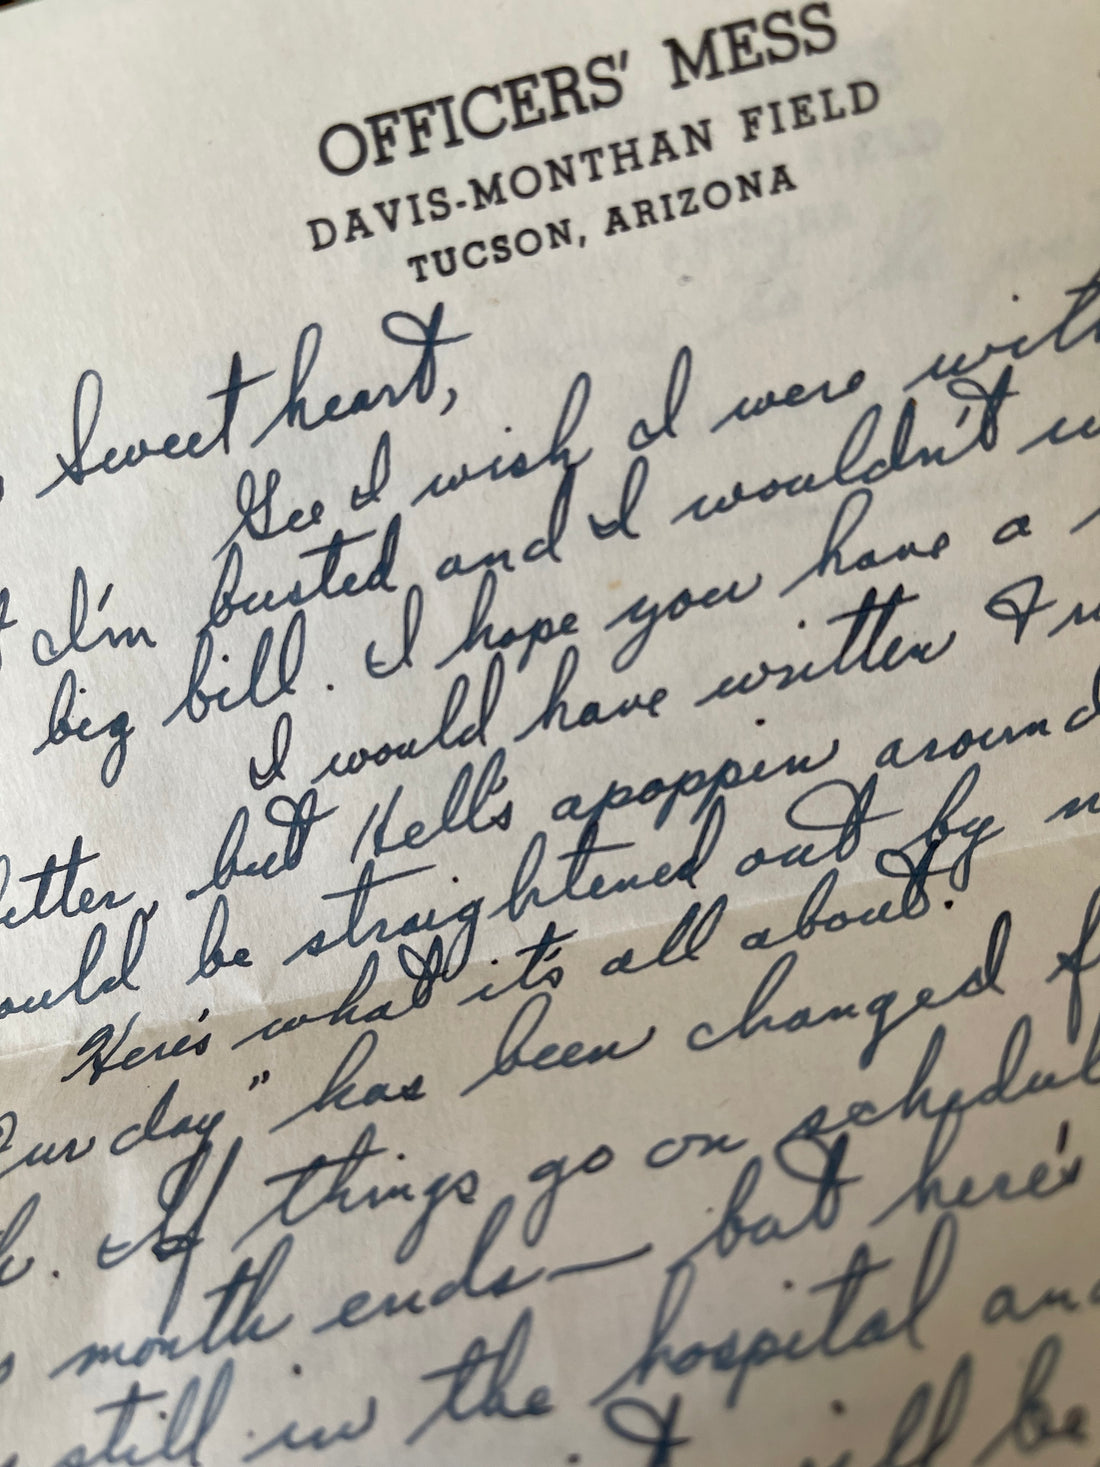 OFFICERS' MESS
DAVIS-MONTHAN FIELD
TUCSON, ARIZONA
Sweet heart,
Gee I wish I were with
I'm busted and I wouldn't
big bill. I hope you have a
I would have written
letter, but Hell's apoppin around
ould be straightened out by
Here's what it's all about.
Our day" has been changed
. If things go on schedul
month ends— but here's
still in the hospital and
I will be